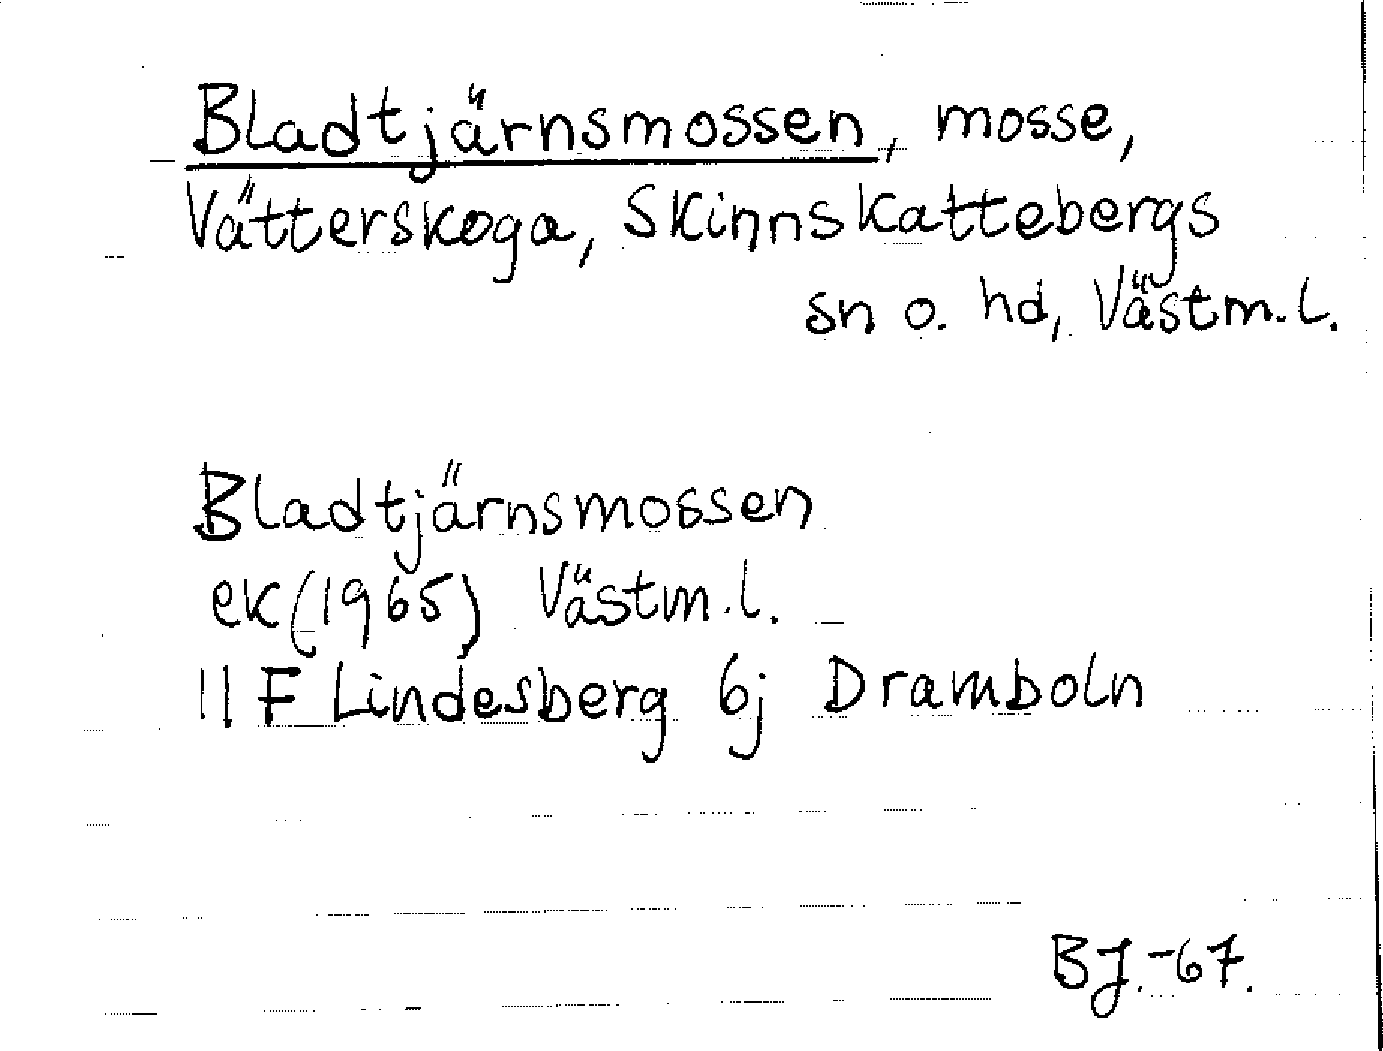 Bladtjärnsmossen, mosse,
Vätterskoga, Skinnskattebergs
sn o. hd, Västm.l.
Bladtjärnsmossen
ek(1965) Västm.l.
11F Lindesberg 6j Dramboln
BJ.-67.